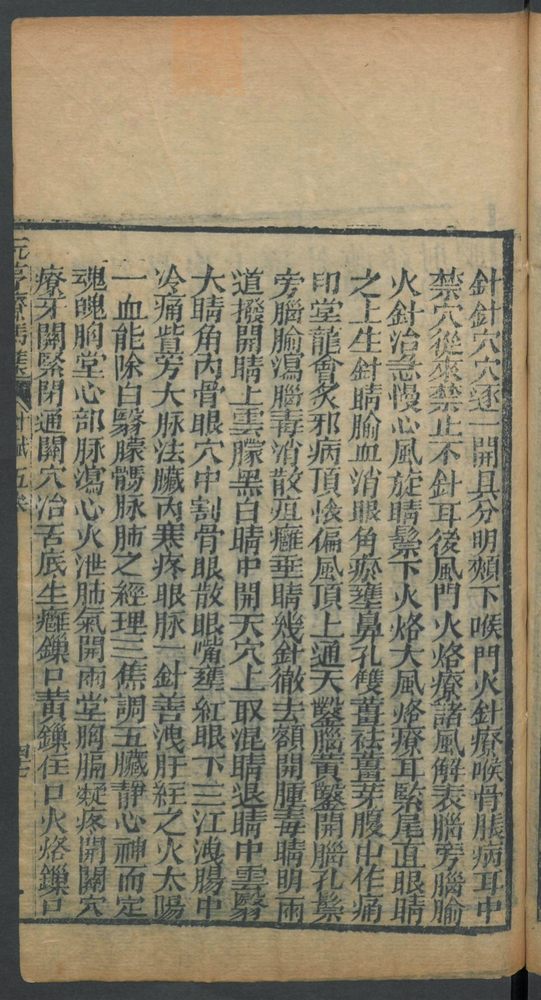 針針穴穴逐一開具分明頰下喉門火針療喉骨脹病耳中
禁穴從來禁止不針耳後風門火烙療諸風解表腦旁腦腧
火針治急慢心風旋睛鬃下火烙大風烙療耳緊尾直眼睛
之上生針睛腧血消眼角瘀壅鼻孔雙薑祛薑芽腹中作痛
印堂龍會炙邪病頂悷偏風頂上通天鑿腦黄鑿開腦孔鬃
旁腦腧瀉腦毒消散疽癰垂睛幾針徹去額開腫毒睛明兩
道撥開睛上雲朦黑白睛中開天穴上取混睛退睛中雲翳
大睛角内骨眼穴中割骨眼散眼嘴壅紅眼下三江洩腸中
冷痛眥旁大脉法臟内寒疼眼脉一針善洩肝經之火太陽
一血能除白翳朦鶻脉肺之經理三焦調五臟靜心神而定
魂魄胸堂心部脉瀉心火泄肺氣開兩堂胸膈凝疼開關穴
療牙關緊閉通關穴治舌底生癰鏁口黄鏁住口火烙鏁口
元亨療馬集